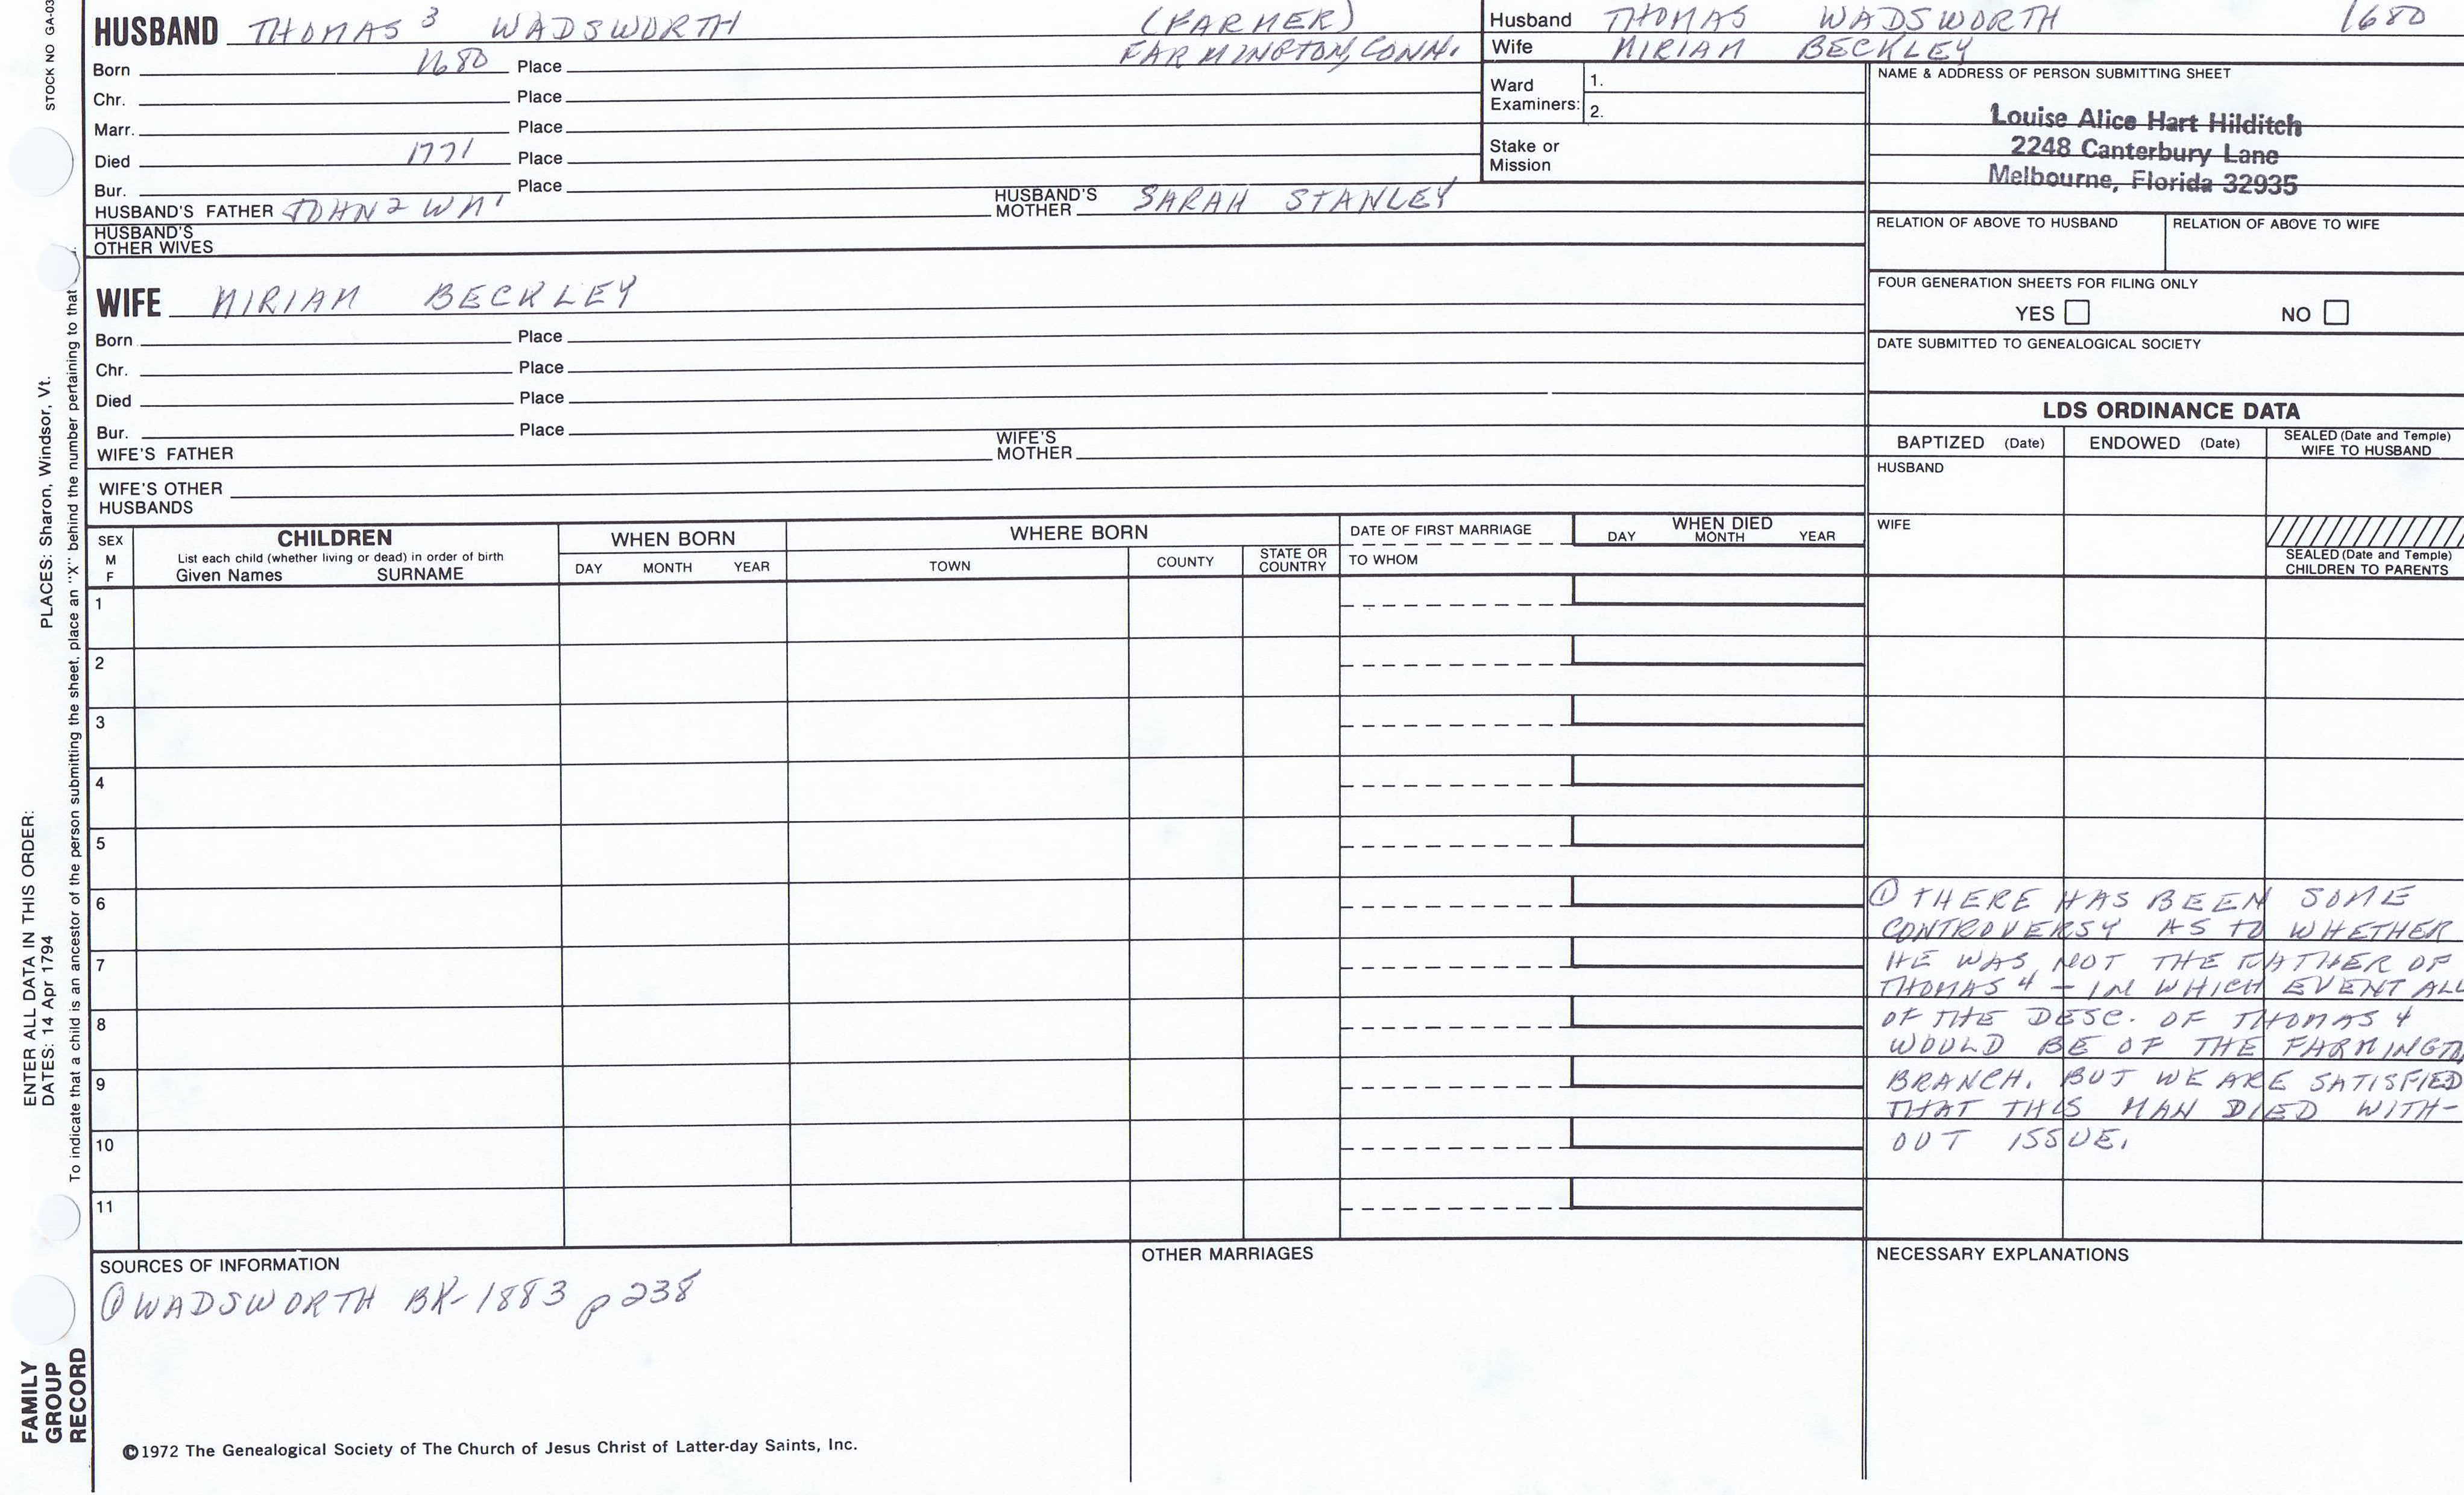 STOCK NO GA-03
HUSBAND THOMAS 3 WADSWORTH (FARMER)
Born 1680 Place FARMINGTON, CONN.
Chr. Place
Marr. Place
Died 1771 Place
Bur. Place
HUSBAND'S FATHER JOHN 2
HUSBAND'S MOTHER SARAH STANLEY
HUSBAND'S
OTHER WIVES
WIFE MIRIAM BECKLEY
Born Place
Chr. Place
Died Place
Bur. Place
WIFE'S FATHER
WIFE'S MOTHER
WIFE'S OTHER
HUSBANDS
Husband THOMAS WADSWORTH 1680
Wife MIRIAM BECKLEY
Ward
Examiners:
1.
2.
Stake or
Mission
NAME & ADDRESS OF PERSON SUBMITTING SHEET
Louise Alice Hart Hilditch
2248 Canterbury Lane
Melbourne, Florida 32935
RELATION OF ABOVE TO HUSBAND
RELATION OF ABOVE TO WIFE
FOUR GENERATION SHEETS FOR FILING ONLY
YES NO
DATE SUBMITTED TO GENEALOGICAL SOCIETY
LDS ORDINANCE DATA
BAPTIZED (Date)
ENDOWED (Date)
SEALED (Date and Temple)
WIFE TO HUSBAND
HUSBAND
WIFE
SEALED (Date and Temple)
CHILDREN TO PARENTS
SEX
M
F
CHILDREN
List each child (whether living or dead) in order of birth
Given Names SURNAME
WHEN BORN
DAY MONTH YEAR
WHERE BORN
TOWN
COUNTY
STATE OR
COUNTRY
DATE OF FIRST MARRIAGE
TO WHOM
WHEN DIED
DAY MONTH YEAR
1
2
3
4
5
6
7
8
9
10
11
① THERE HAS BEEN SOME
CONTROVERSY AS TO WHETHER
HE WAS NOT THE FATHER OF
THOMAS 4 – IN WHICH EVENT ALL
OF THE DESC. OF THOMAS 4
WOULD BE OF THE FARMINGTO
BRANCH. BUT WE ARE SATISFIED
THAT THIS MAN DIED WITH-
OUT ISSUE.
SOURCES OF INFORMATION
① WADSWORTH BK-1883 p 238
OTHER MARRIAGES
NECESSARY EXPLANATIONS
©1972 The Genealogical Society of The Church of Jesus Christ of Latter-day Saints, Inc.
FAMILY
GROUP
RECORD
ENTER ALL DATA IN THIS ORDER:
DATES: 14 Apr 1794 PLACES: Sharon, Windsor, Vt.
To indicate that a child is an ancestor of the person submitting the sheet, place an "X" behind the number pertaining to that